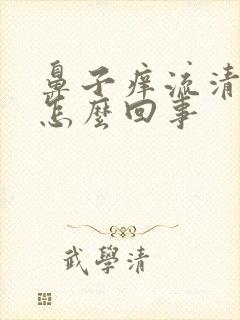 鼻子痒流清
怎麼回事
武學清